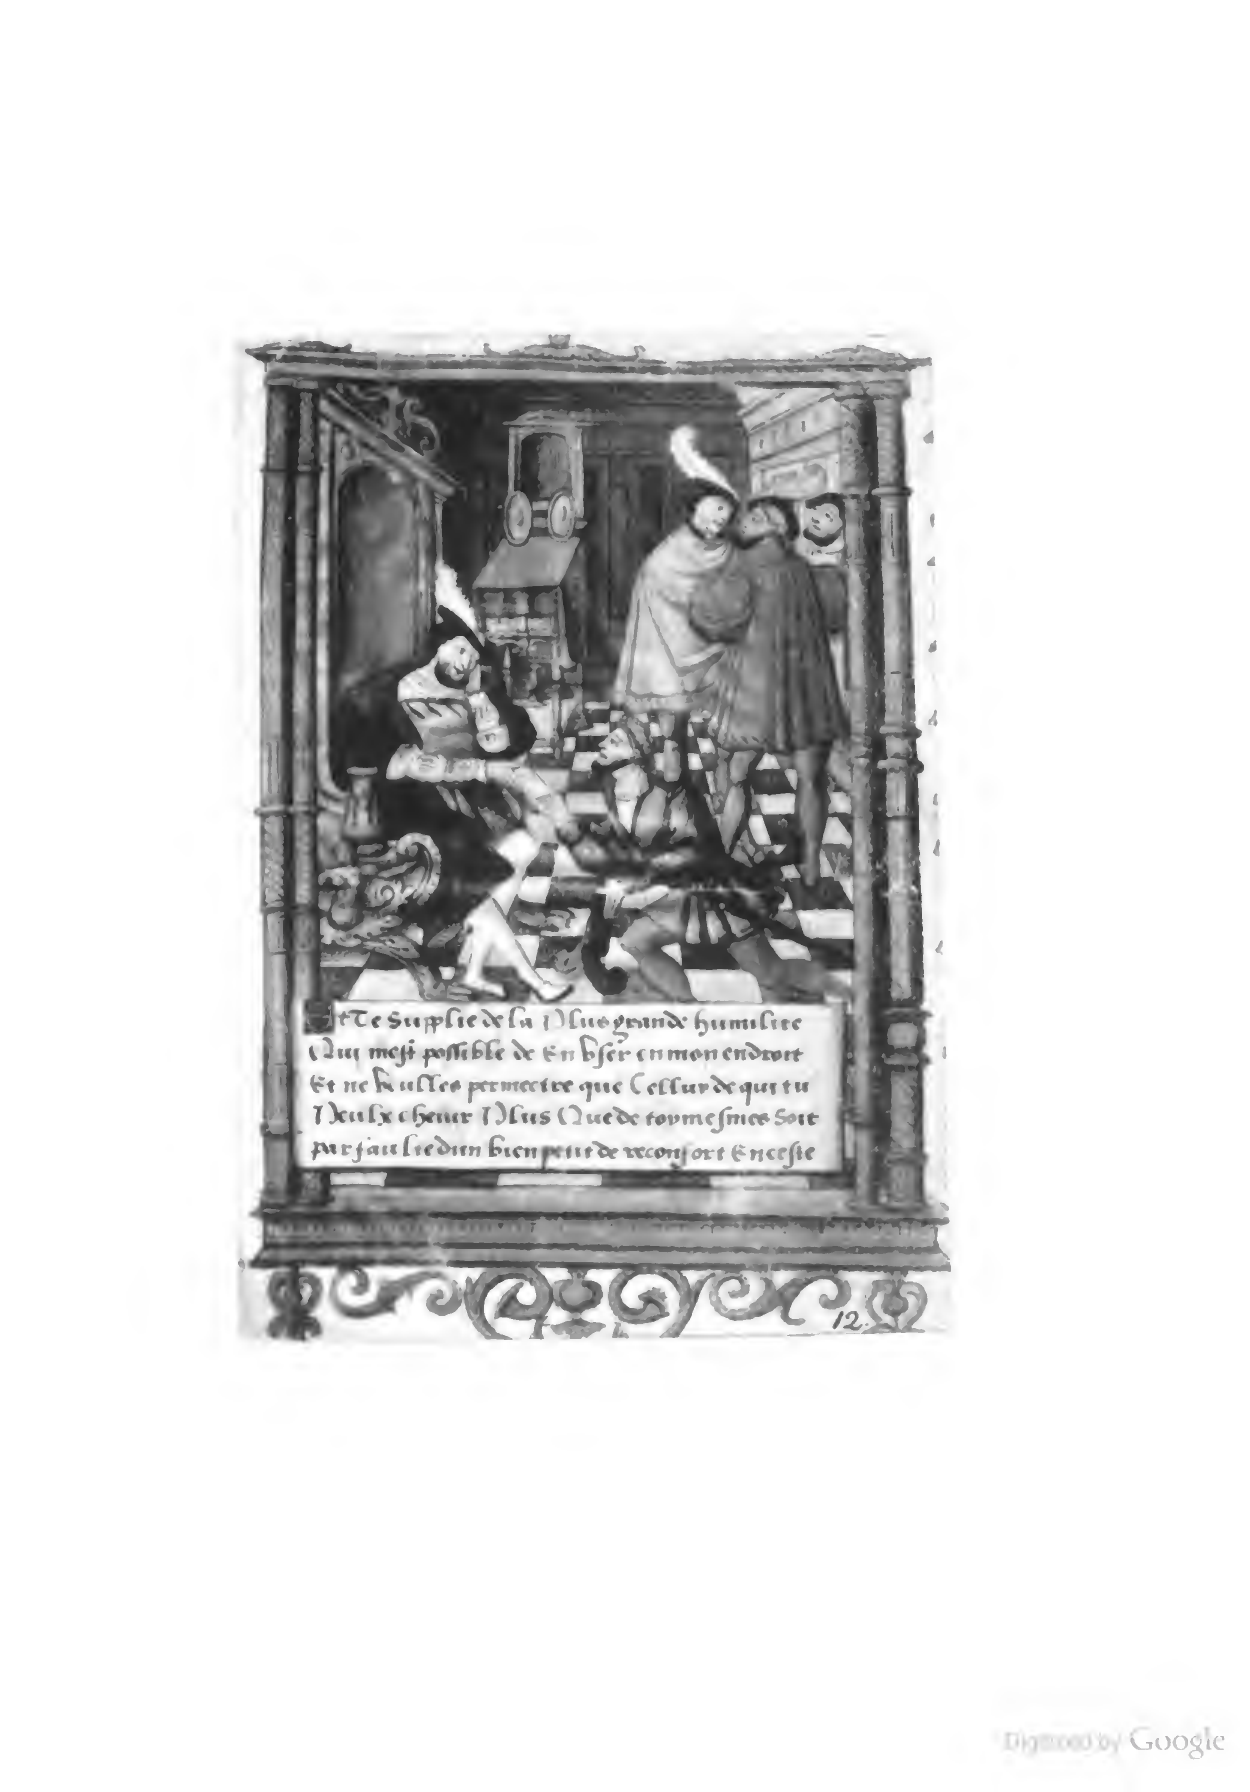 Et Te Supplie de la Plus grande humilite
Qui mest possible de En vser en mon endroit
Et ne veulles permectre que Celluy de qui tu
Peulx cheuir Plus Que de toymesmes Soit
par faulte dun bien petit de reconfort En ceste
12.
Digitized by Google